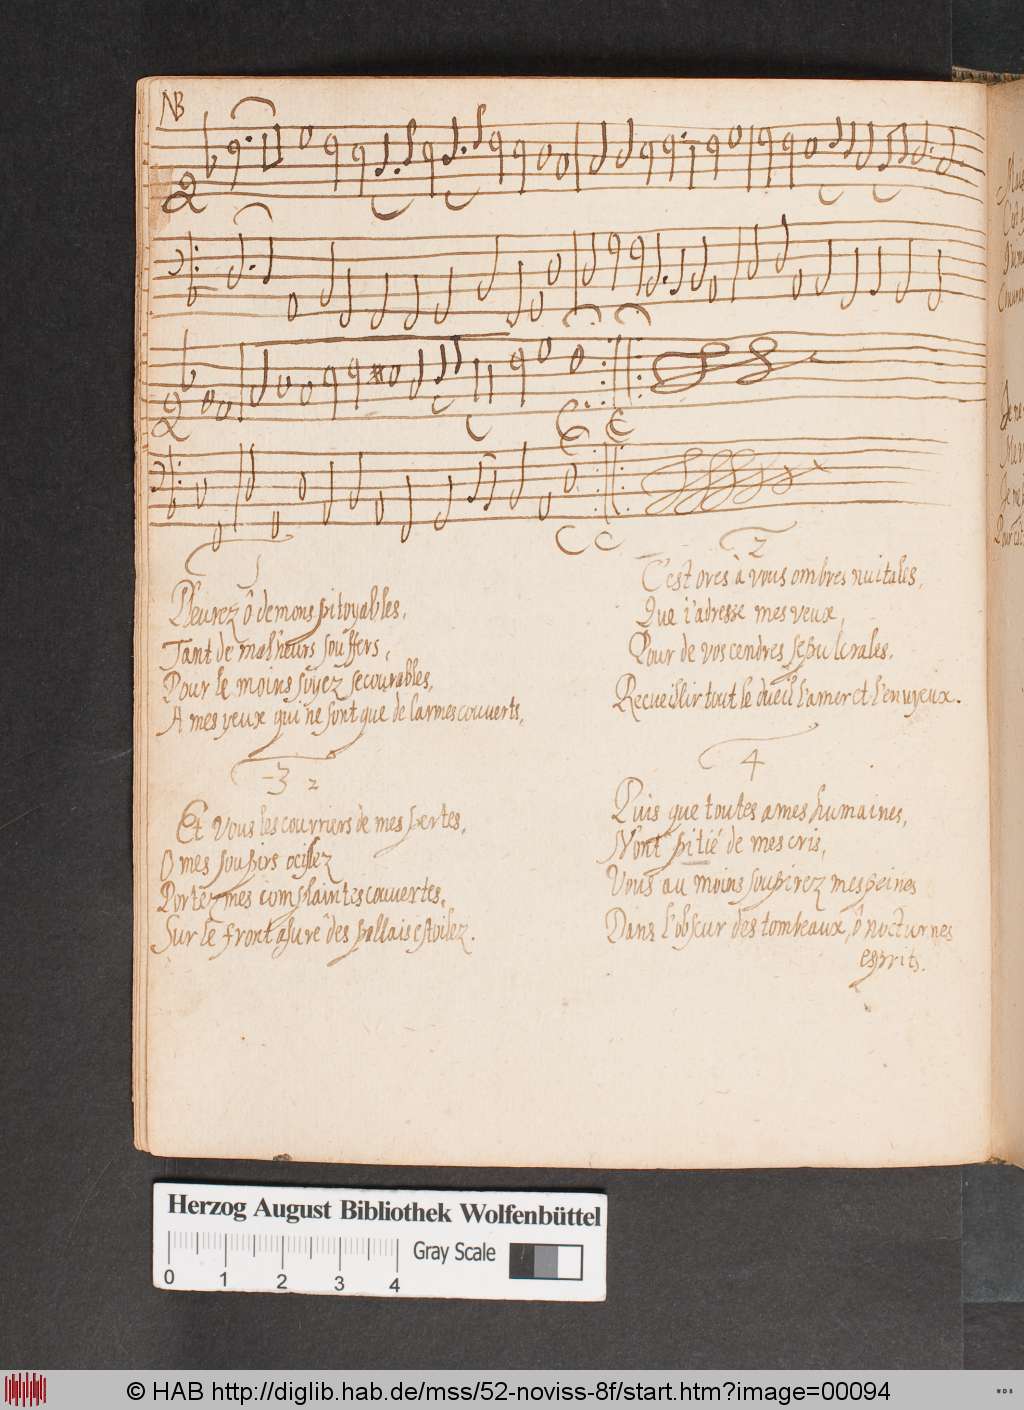 NB
1
Pleurez ô demons pitoyables,
Tant de malheurs souffers,
Pour le moins soyez secourables,
A mes yeux qui ne sont que de larmes couverts,
2
C'est ores à vous ombres nuitales,
Que i'adresse mes veux,
Pour de vos cendres sepulcrales,
Recueillir tout le dueil l'amer et l'ennyeux.
3 2
Et vous les courriers de mes pertes,
O mes soupirs
Portez mes complaintes couvertes,
Sur le front asuré des pallais estoilez.
4
Puis que toutes ames humaines,
N'ont pitié de mes cris,
Vous au moins soupirez mes peines
Dans l'obscur des tombeaux, ô nocturnes
esprits.
Herzog August Bibliothek Wolfenbüttel
Gray Scale
0 1 2 3 4
© HAB http://diglib.hab.de/mss/52-noviss-8f/start.htm?image=00094